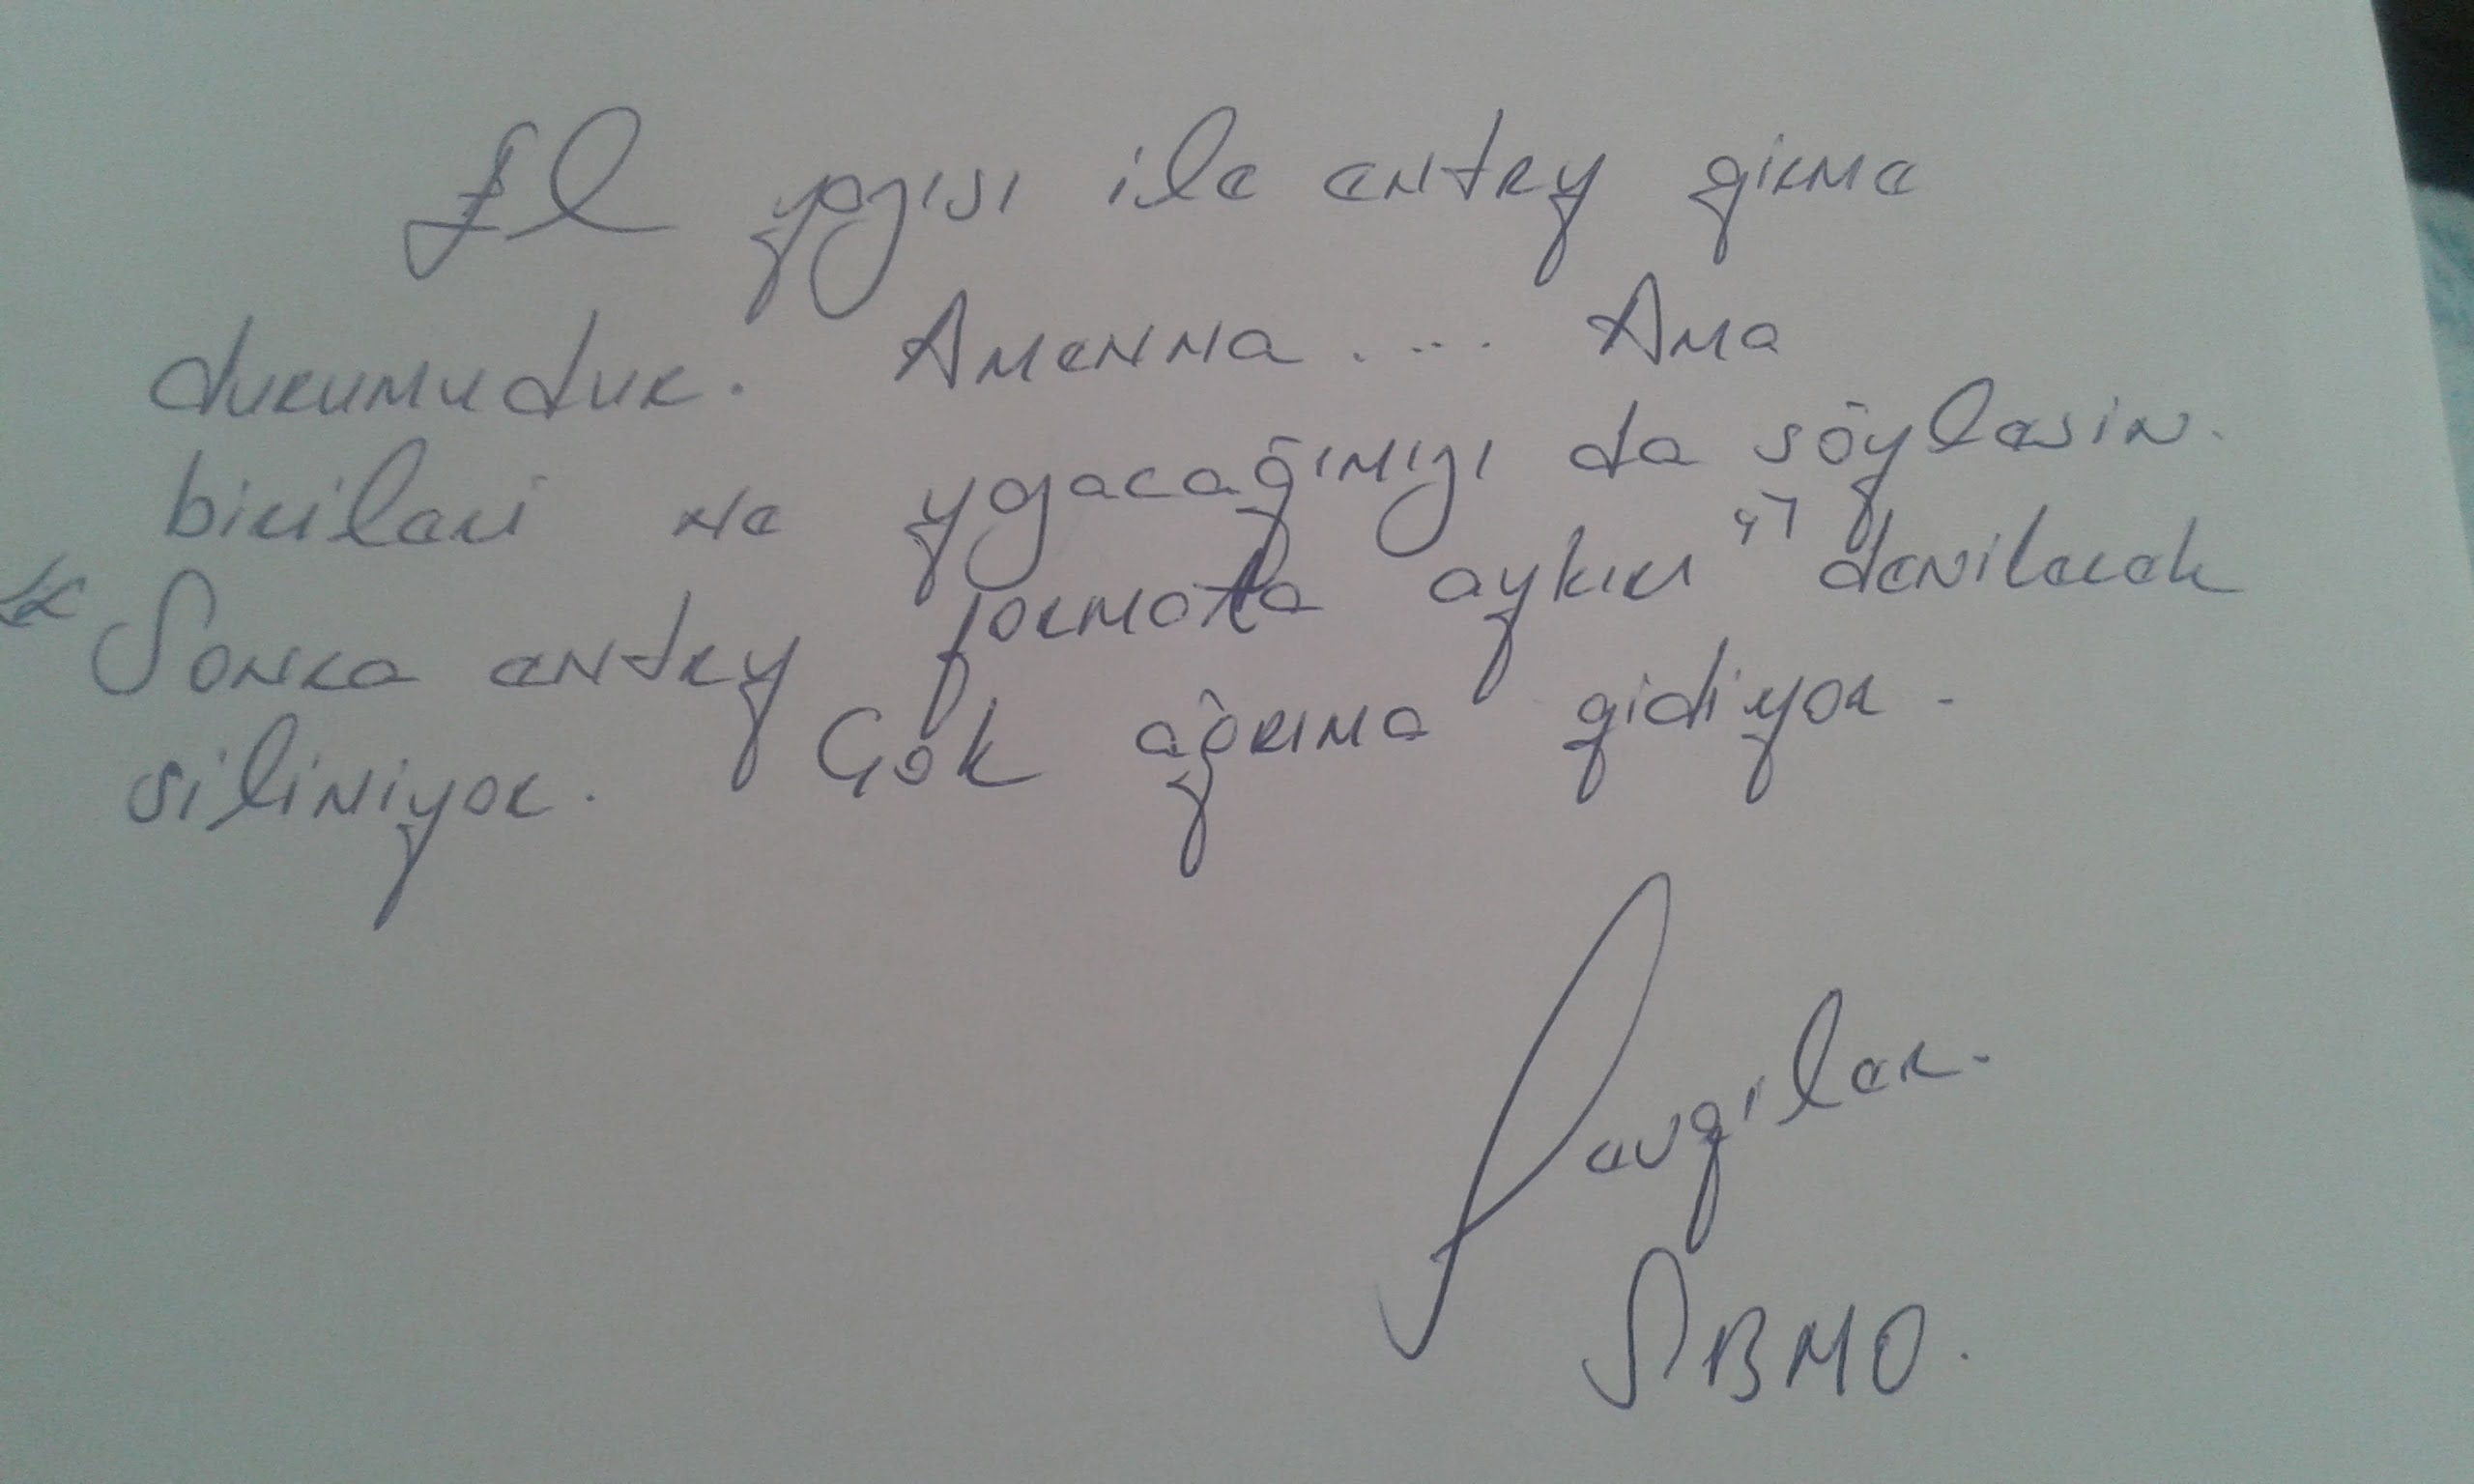 El yazısı ile entry girme
durumudur. Amenna .... Ama
birileri ne yazacağımızı da söylesin.
"Sonra entry formata aykırı" denilerek
siliniyor. Çok ağrıma gidiyor.
Sevgiler.
SBMO.